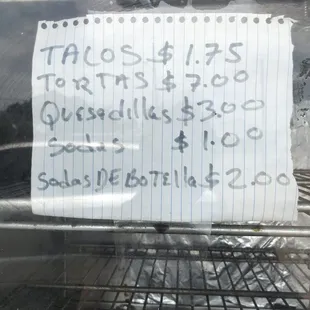 TACOS $ 1.75
TORTAS $ 7.00
Quesedillas $3.00
Sodas $ 1.00
Sodas DE BOTElla $ 2.00